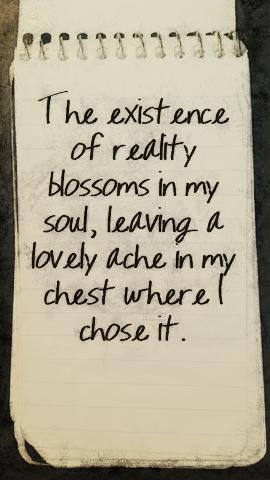 The existence
of reality
blossoms in my
soul, leaving a
lovely ache in my
chest where I
chose it.